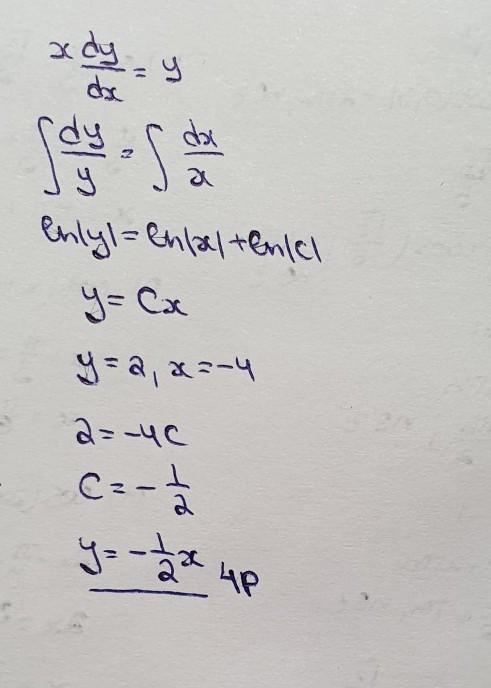 x dy/dx = y
∫ dy/y = ∫ dx/x
ln|y| = ln|x| + ln|c|
y = Cx
y = 2, x = -4
2 = -4C
C = - 1/2
y = - 1/2 x 4P